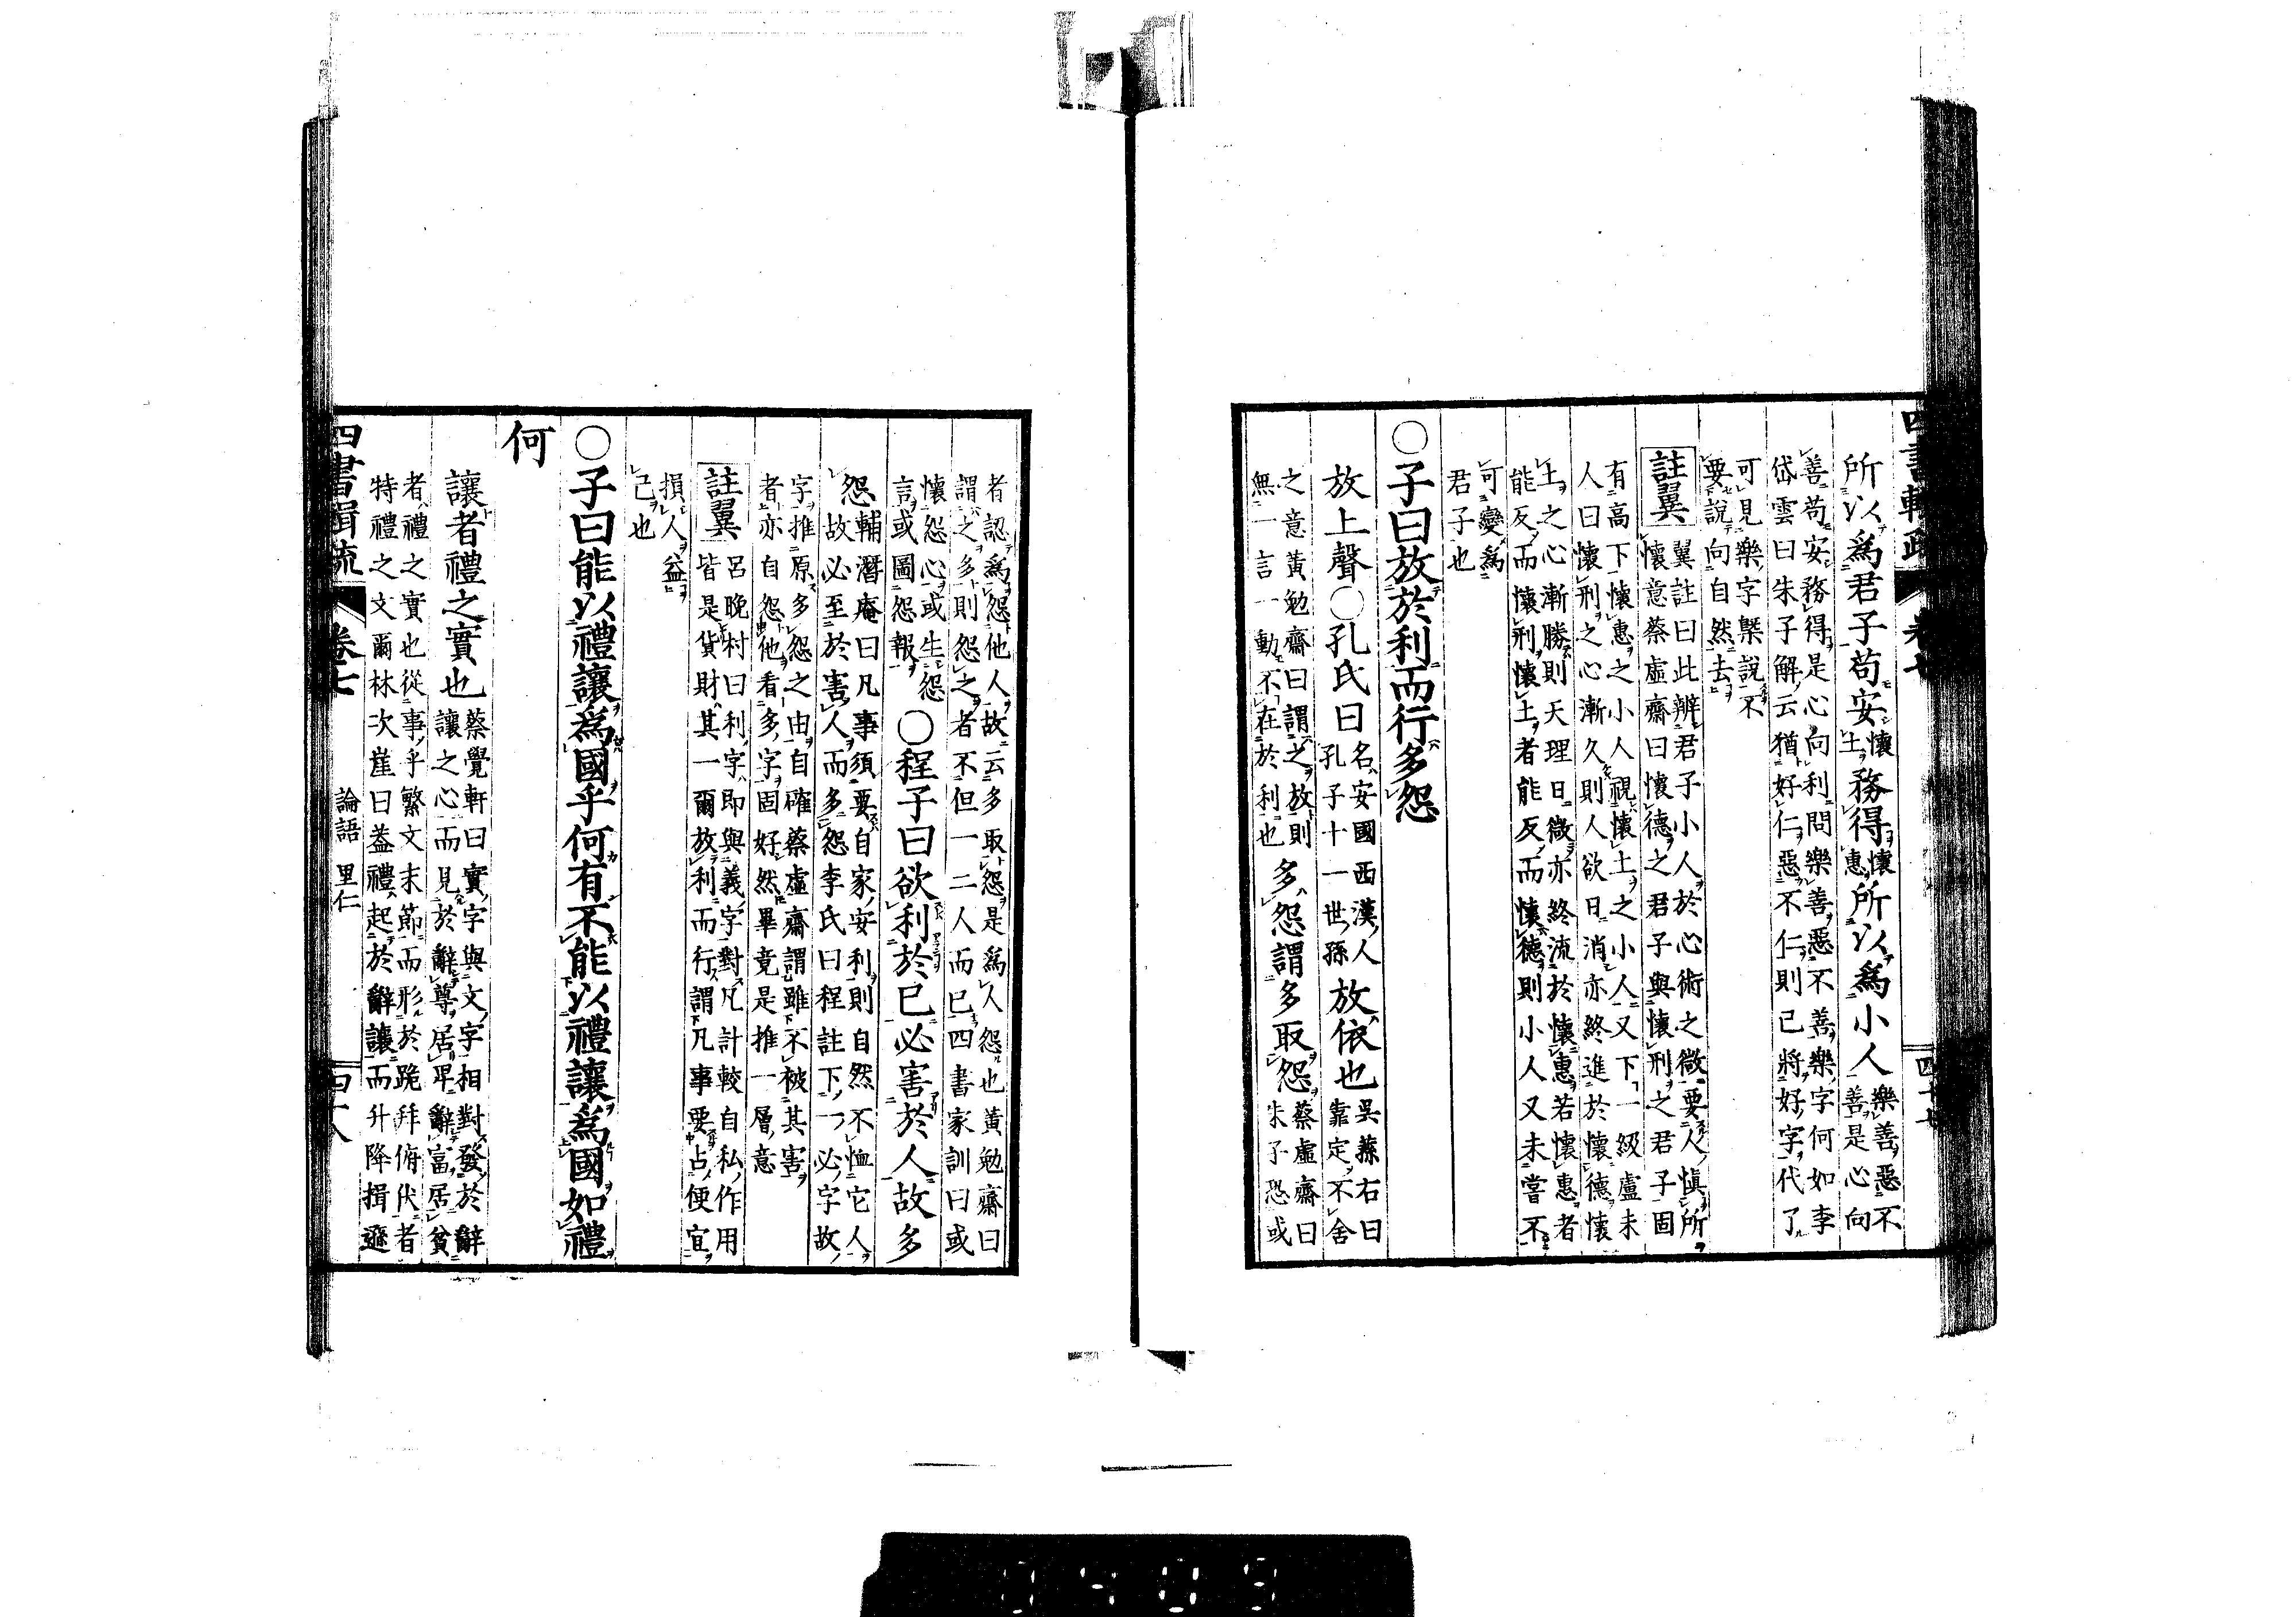 四書輯疏 卷七 四十七
所以爲君子苟安懷土務得懷惠所以爲小人樂善惡不
善是心向
善苟安務得是心向利問樂善惡不善樂字何如李
岱雲曰朱子解云猶好仁惡不仁則已將好字代了
可見樂字槩說不
要說向自然去
註翼 翼註曰此辨君子小人於心術之微要人愼所
懷意蔡虛齋曰懷德之君子與懷刑之君子固
有高下懷惠之小人視懷土之小人又下一級盧未
人曰懷刑之心漸久則人欲日消亦終進於懷德懷
土之心漸勝則天理日微亦終流於懷惠若懷惠者
能反而懷刑懷土者能反而懷德則小人又未嘗不
可變爲
君子也
○子曰放於利而行多怨
放上聲○孔氏曰名安國西漢人孔子十一世孫放依也吳蓀右曰靠定不舍
之意黃勉齋曰謂之放則無一言一動不在於利也多怨謂多取怨蔡虛齋曰朱子恐或
者認爲怨他人故云多取怨是爲人怨也黃勉齋曰
謂之多則怨之者不但一二人而已四書家訓曰或
懷怨心或生怨言或圖怨報○程子曰欲利於已必害於人故多
怨輔潛庵曰凡事須要自家安利則自然不恤它人
故必至於害人而多怨李氏曰程註下一必字故
字推原多怨之由自確蔡虛齋謂雖不被其害
者亦自怨他看多字固好然畢竟是推一層意
註翼 呂晚村曰利字即與義字對凡計較自私作用
皆是貨財其一爾放利而行謂凡事要占便宜
損人益
己也
○子曰能以禮讓爲國乎何有不能以禮讓爲國如禮
何
讓者禮之實也蔡覺軒曰實字與文字相對發於辭
讓之心而見於辭尊居卑辭富居貧
者禮之實也從事乎繁文末節而形於跪拜俯伏者
特禮之文爾林次崖曰葢禮起於辭讓而升降揖遜
四書輯疏 卷七 論語 里仁 四十八